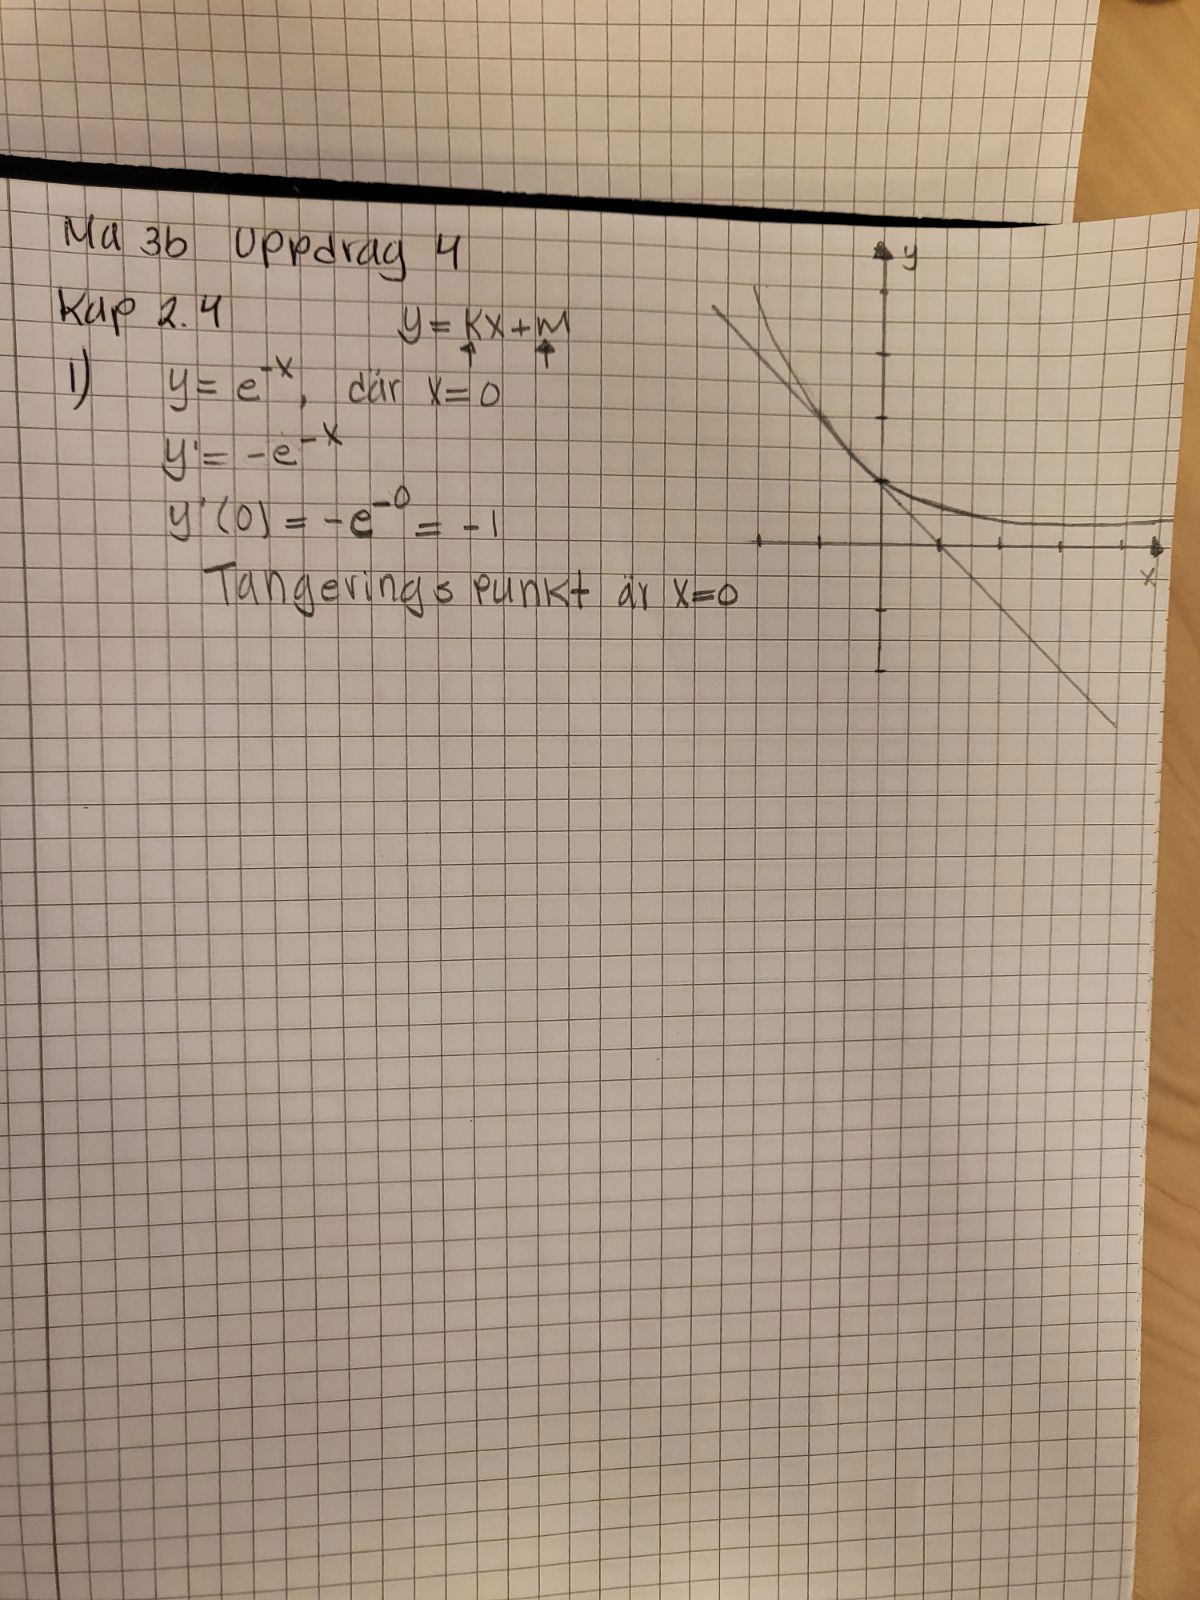 Ma 3b Uppdrag 4
Kap 2.4
y = kx + m
1) y = e^-x, där x = 0
y' = -e^-x
y'(0) = -e^-0 = -1
Tangeringspunkt är x=0
y
x